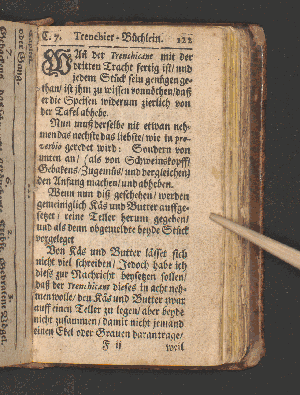 C. 7. Trenchier-Büchlein. 122
WAñ der Trenchicant mit der
dritten Tracht fertig ist/ und
jedem Stück sein genügen ge-
than/ ist ihm zu wissen vonnöthen/ daß
er die Speisen widerum zierlich von
der Tafel abhebe.
Nun muß derselbe nit etwan neh-
men das nechste das liebste/ wie in pro-
verbio geredet wird: Sondern von
unten an/ (als von Schweinskopff/
Gebakens/ Zugemüs/ und dergleichen)
den Anfang machen/ und abheben.
Wenn nun diß geschehen/ werden
gemeiniglich Käs und Butter auffge-
setzet/ reine Teller herum gegeben/
und als denn obgemeldte beyde Stück
vorgeleget
Von Käs und Butter lässet sich
nicht viel schreiben/ Jedoch habe ich
diess zur Nachricht beysetzen sollen/
daß der Trenchicant dieses in acht neh-
men wolle/ den Käs und Butter zwar
auff einen Teller zu legen/ aber beyde
nicht zusammen/ damit nicht jemand
einen Ekel oder Grauen daran trage/
F ii weil